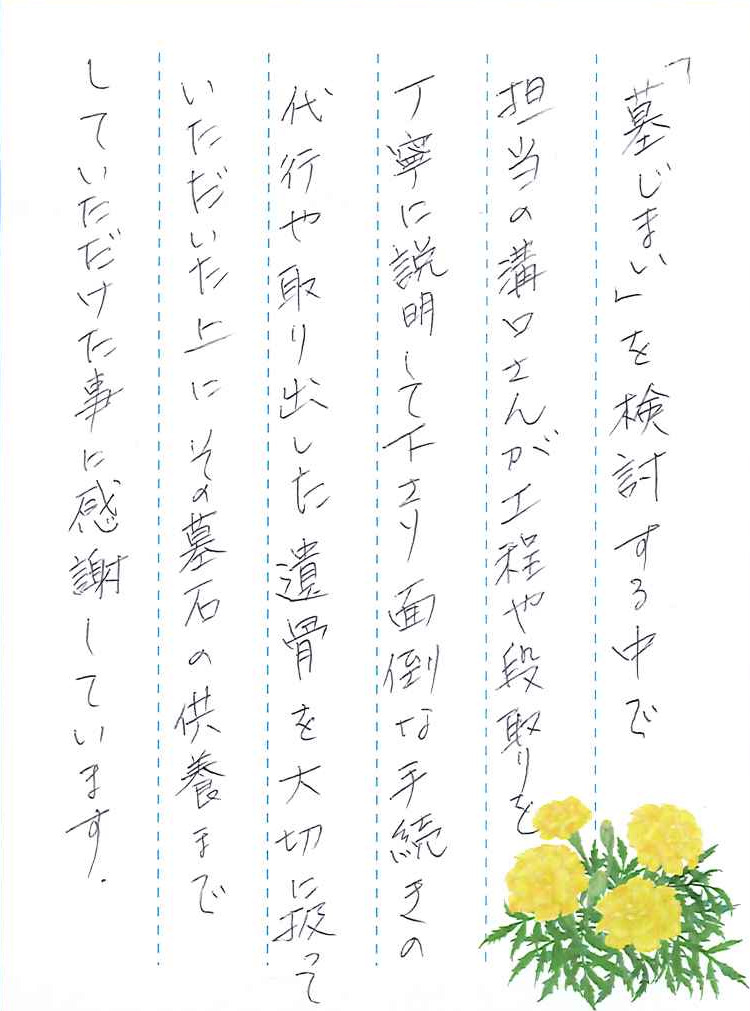 「墓じまい」を検討する中で
担当の溝口さんが工程や段取りを
丁寧に説明して下さり面倒な手続きの
代行や取り出した遺骨を大切に扱って
いただいた上にその墓石の供養まで
していただけた事に感謝しています.